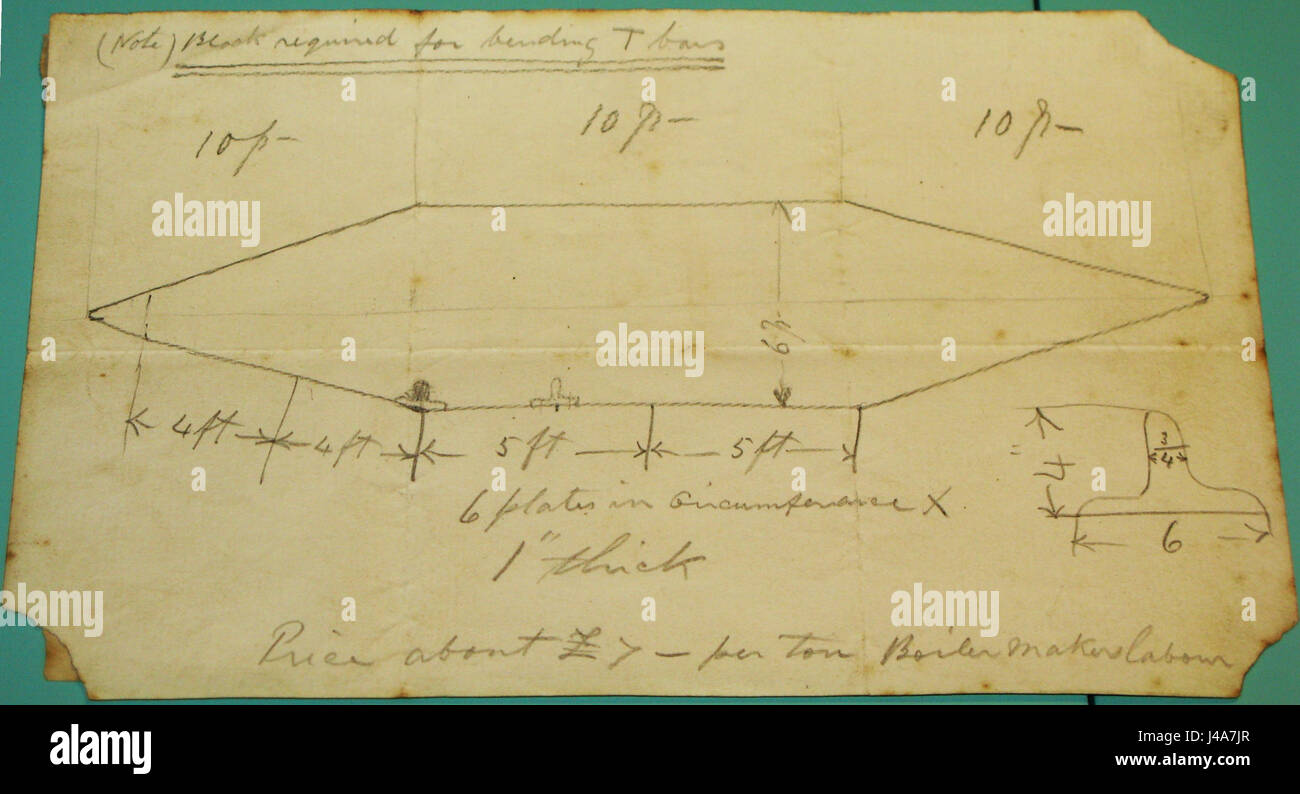 (Note) Block required for bending T bars
10 ft
10 ft
10 ft
6 ft
4 ft
4 ft
5 ft
5 ft
= 4
3/4
6
6 plates in circumference X
1" thick
Price about £7 — per ton Boiler makers labour
a a a a
alamy alamy
a a a a
alamy
a a a a
alamy alamy
a a a a
alamy
Image ID: J4A7JR
www.alamy.com